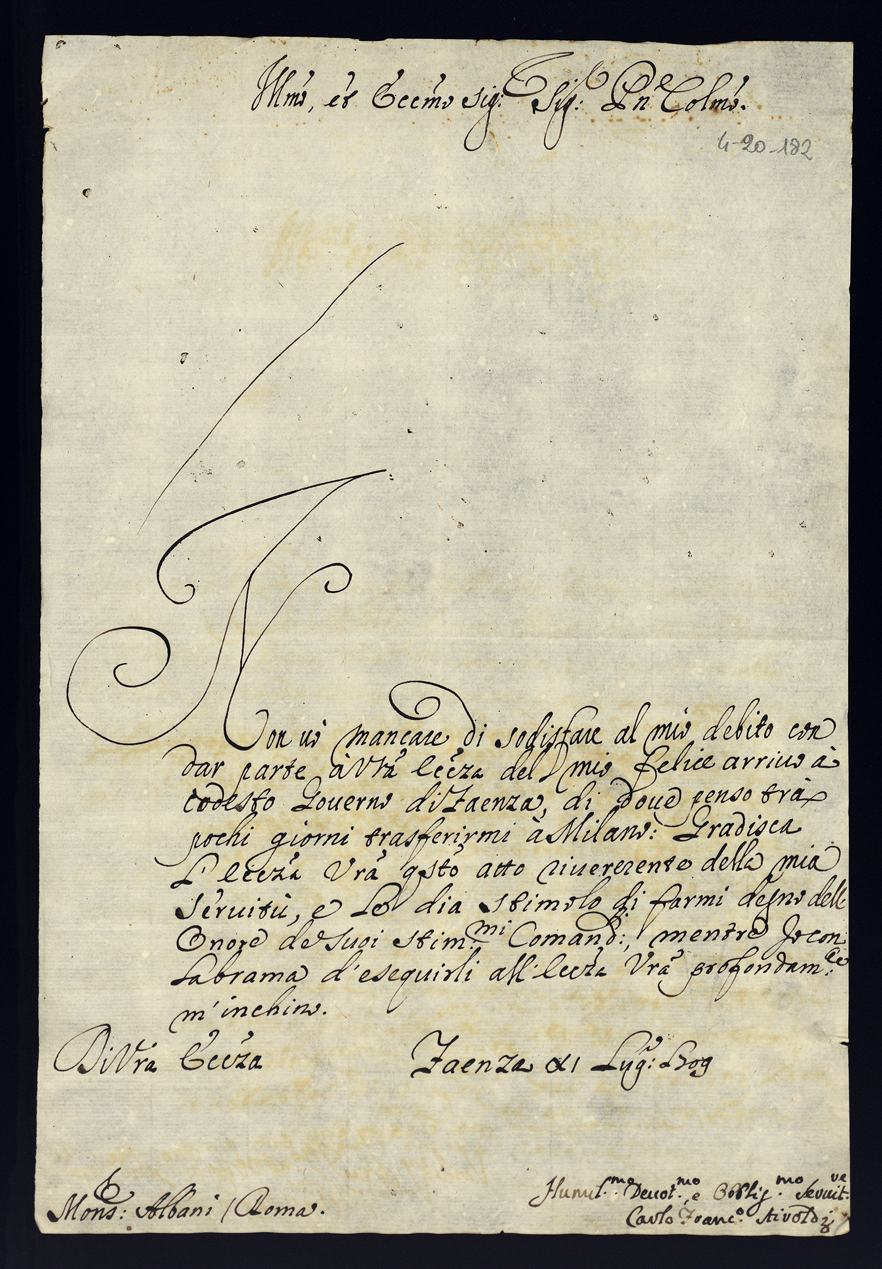 Illmo, et Eccmo Sig: Sig: Pne Colmo.
4-20-182
Non vo mancare di sodisfare al mio debito con
dar parte à Vrã Eccza del mio felice arrivo à
codesto Governo di Faenza, di dove penso trà
pochi giorni trasferirmi à Milano: Gradisca
L'Eccza Vrã qsto atto riverente della mia
servitù, e Le dia stimolo di farmi degno dell
Onore de suoi stim:mi Comand:, mentre Io con
La brama d'eseguirli all'Eccza Vrã profondam:te
m'inchino.
Di Vrã Eccza Faenza Lug:
Mons: Albani / Roma.
Humil:mo Devot:mo e Obblig:mo Servit:re
Carlo Franc:o